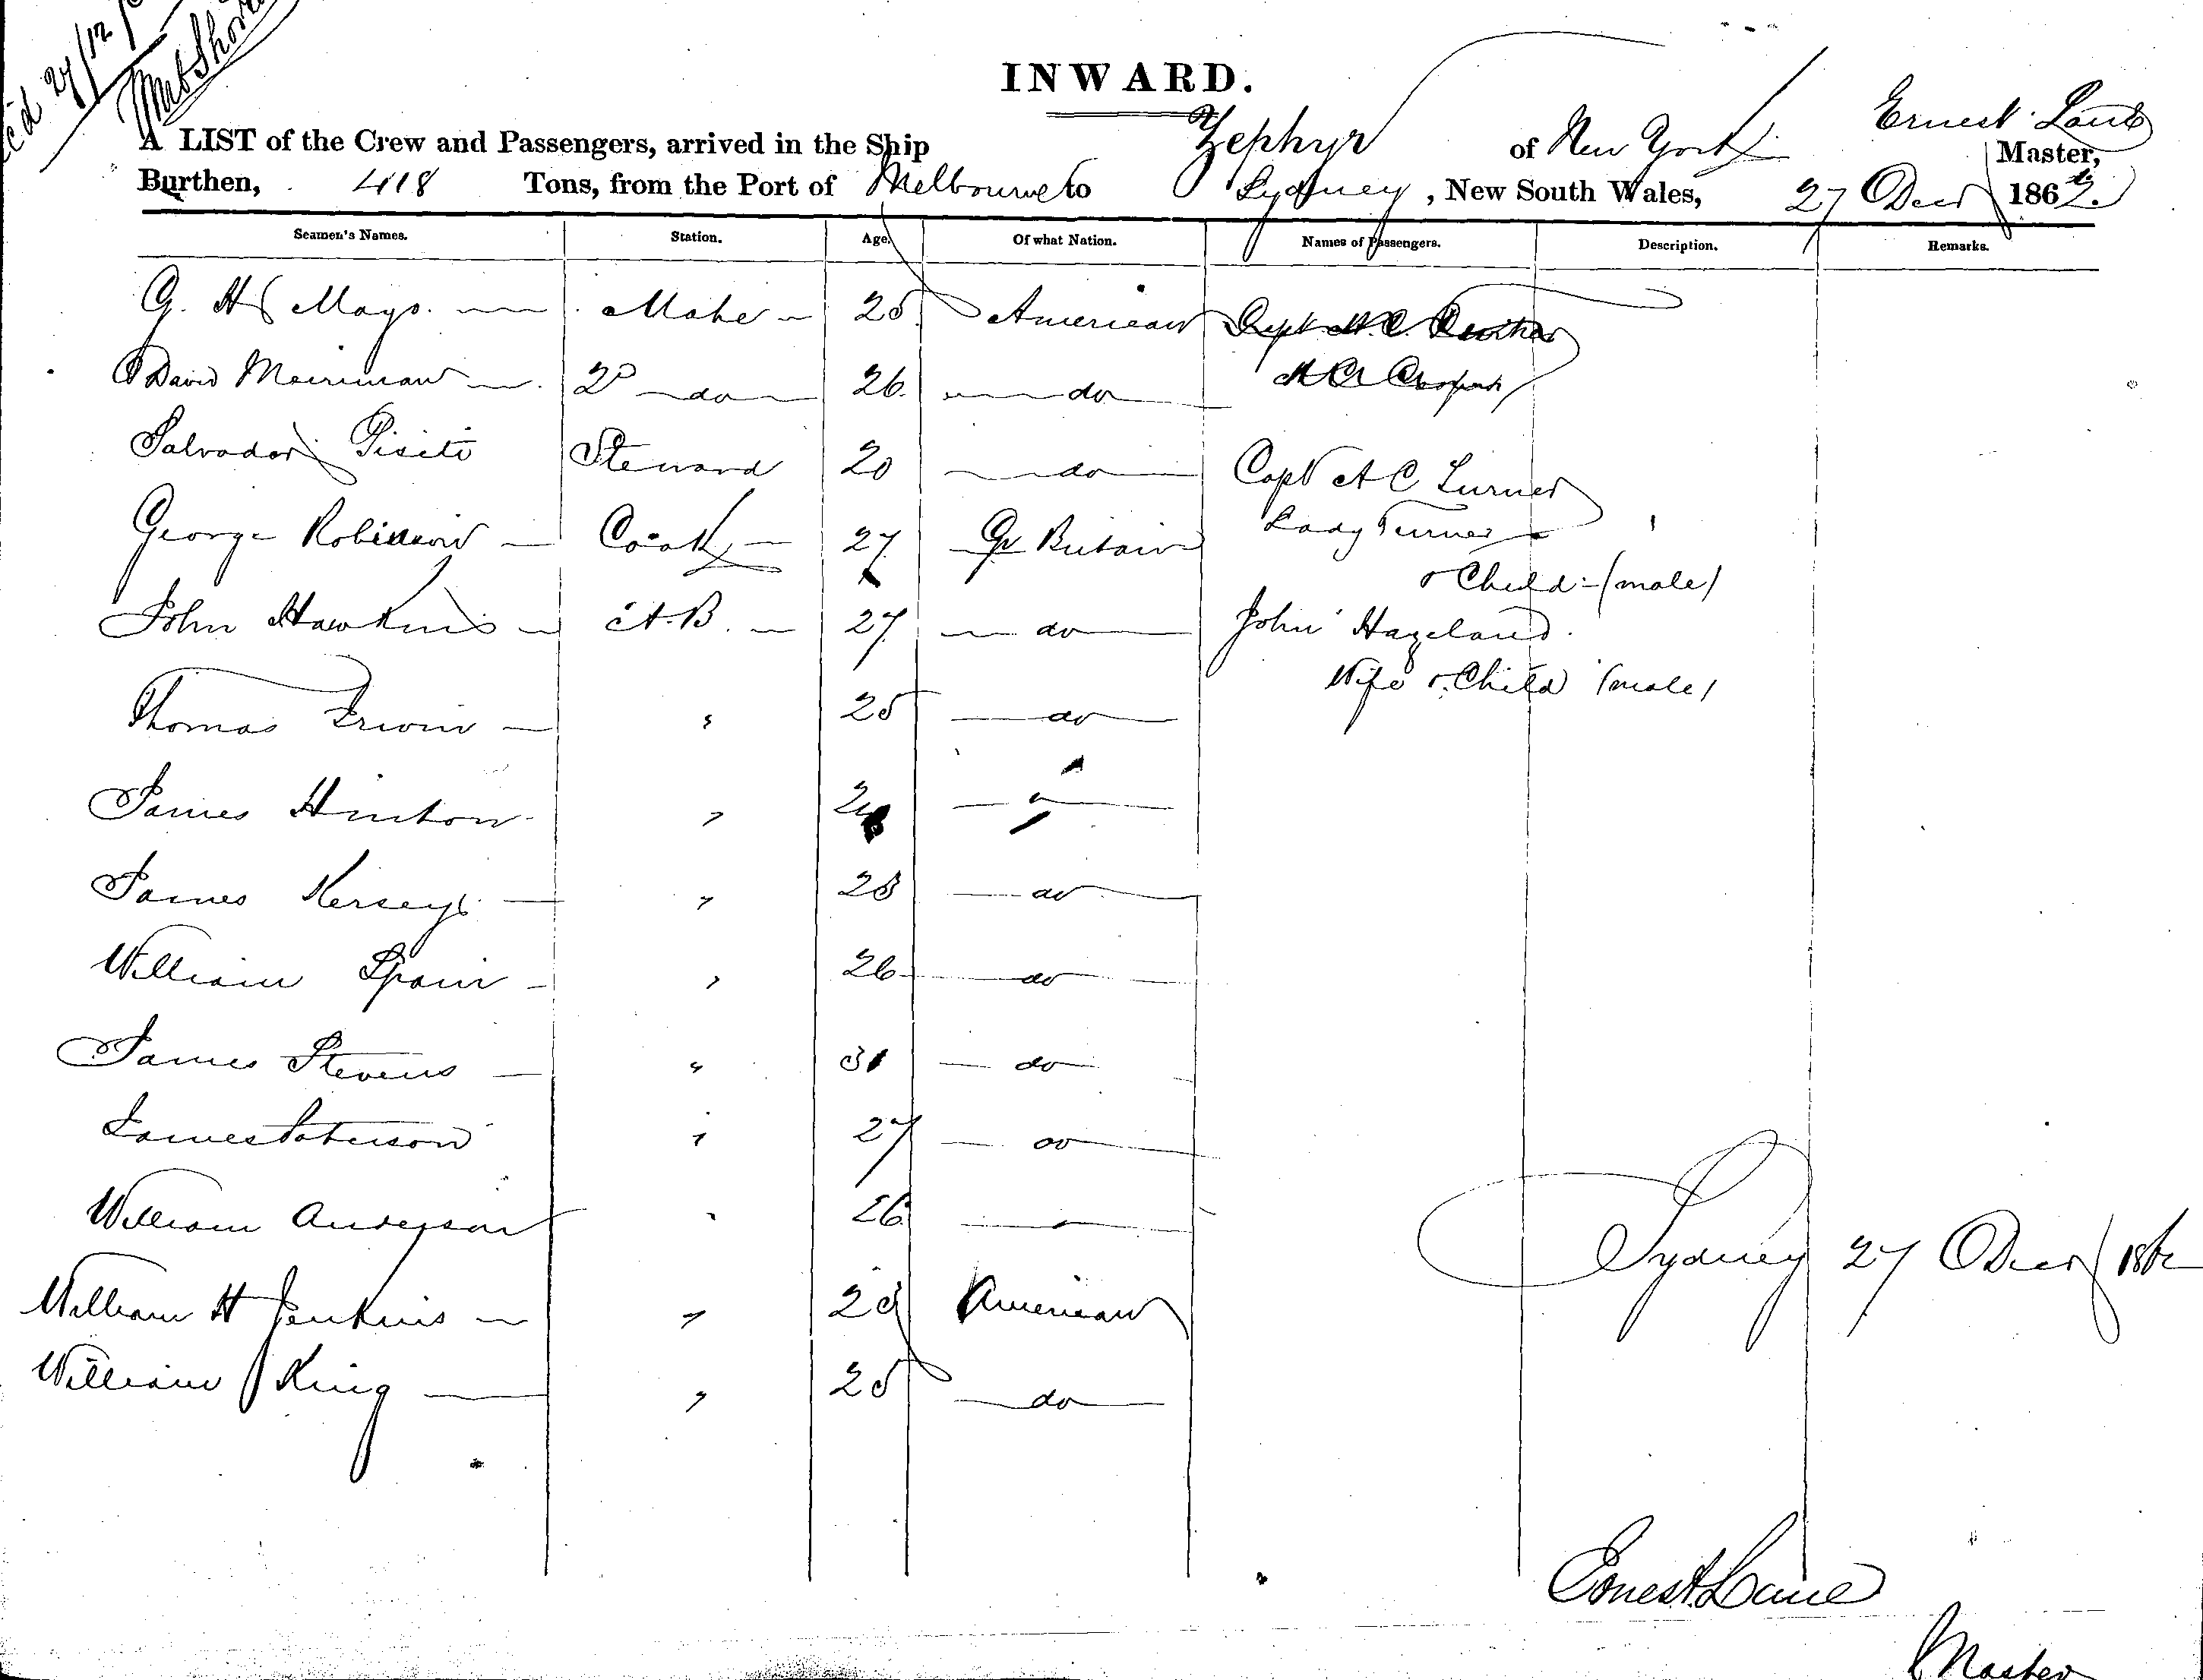 27/12/
INWARD.
A LIST of the Crew and Passengers, arrived in the Ship Zephyr of New York Ernest Lane Master,
Burthen, 418 Tons, from the Port of Melbourne to Sydney, New South Wales, 27 Decr 1862.
Seamen's Names. Station. Age. Of what Nation. Names of Passengers. Description. Remarks.
G. H. Mayo. Mate 25 American Capt
David Merriman 2D do 26 do
Salvador Pisete Steward 20 do Capt A C Turner
George Robinson Cook 27 Gt Britain Lady Turner
& Child - (male)
John Hawkins A.B. 27 do John Hazeland.
Wife & Child (male)
Thomas Erwin " 25 do
James Hinton " 24 "
James Kersey " 28 do
William Spain " 26 do
James Stevens " 31 do
James Paterson " 27 do
William Anderson " 26 "
William H Jenkins " 23 American
William King " 25 do
Sydney 27 Decr 1862
Ernest Lane
Master